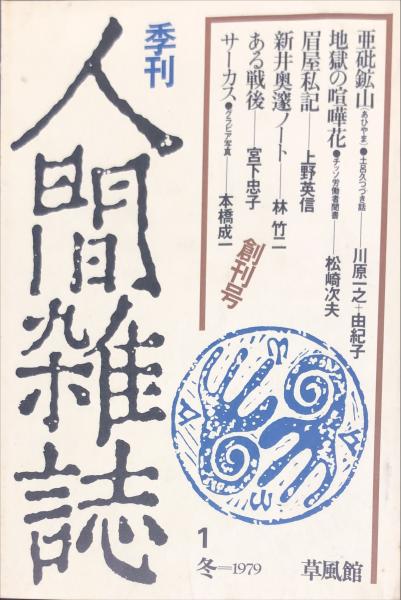 亜砒鉱山(あひやま)●土呂久つづき話――川原一之+由紀子
地獄の喧嘩花●チッソ労働者聞書――松崎次夫
眉屋私記――上野英信
新井奥邃ノート――林竹二
ある戦後――宮下忠子
サーカス●グラビア写真――本橋成一
創刊号
季刊
人間雑誌
1
冬=1979
草風館